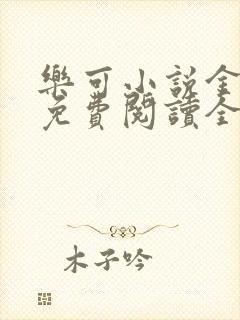 樂可小說全
免費閱讀全
木子吟